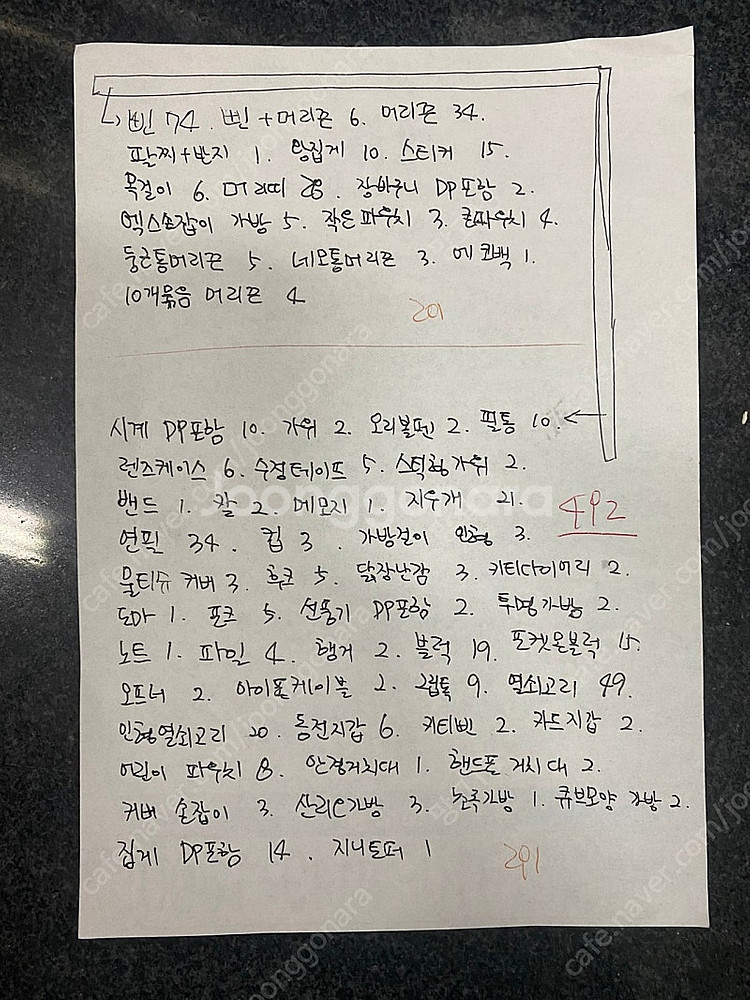 삔 74. 삔 + 머리끈 6. 머리끈 34.
팔찌+반지 1. 왕집게 10. 스티커 15.
목걸이 6. 머리띠 28. 장바구니 DP포함 2.
엑스손잡이 가방 5. 작은파우치 3. 큰파우치 4.
둥근통머리끈 5. 네모통머리끈 3. 에코백 1.
10개묶음 머리끈 4
201
시계 DP포함 10. 가위 2. 오리볼펜 2. 필통 10.
렌즈케이스 6. 수정테이프 5. 스틱형가위 2.
밴드 1. 칼 2. 메모지 1. 지우개 21.
492
연필 34. 컵 3. 가방걸이 인형 3.
물티슈 커버 3. 후크 5. 닭장난감 3. 키티다이어리 2.
도마 1. 포크 5. 선풍기 DP포함 2. 투명가방 2.
노트 1. 파일 4. 행거 2. 블럭 19. 포켓몬블럭 15.
오프너 2. 아이폰케이블 2. 그립톡 9. 열쇠고리 49.
인형열쇠고리 20. 동전지갑 6. 키티삔 2. 카드지갑 2.
어린이 파우치 8. 안경거치대 1. 핸드폰 거치대 2.
커버 손잡이 3. 산리오가방 3. 초록가방 1. 큐브모양 가방 2.
집게 DP포함 14. 지니토퍼 1
291
joonggonara